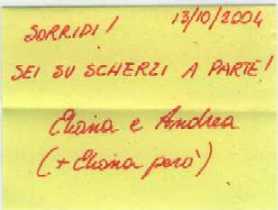 SORRIDI! 13/10/2004
SEI SU SCHERZI A PARTE!
Eliana e Andrea
(+ Eliana però)